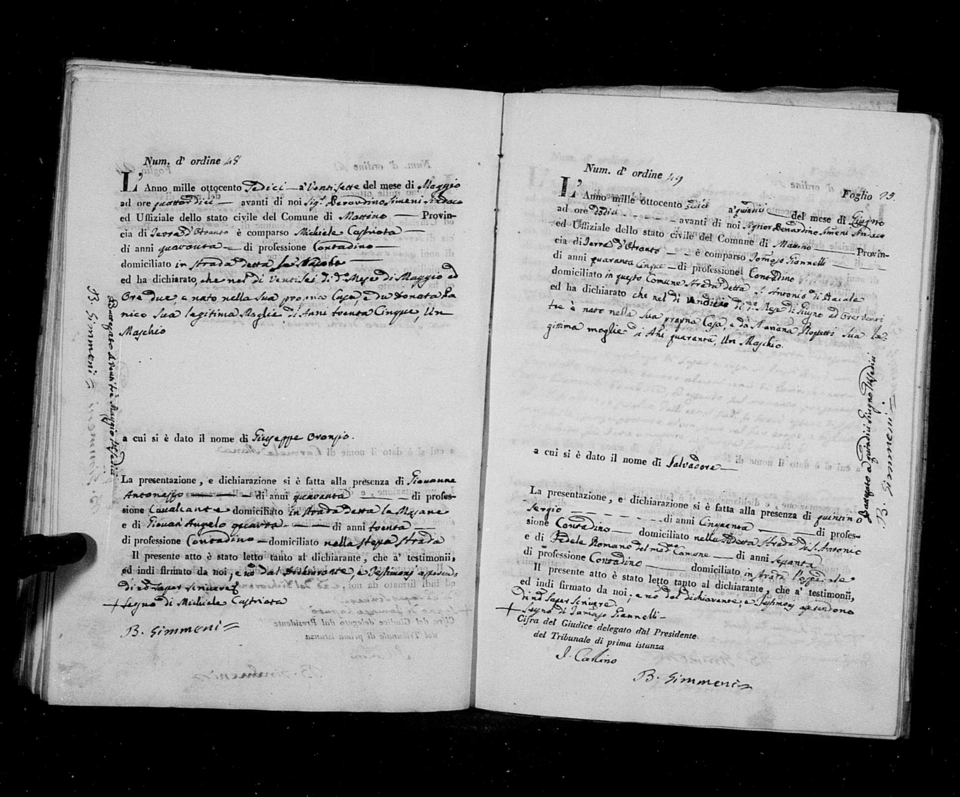 Num. d' ordine 48
L'Anno mille ottocento Sedici a' Ventisette del mese di Maggio
ad ore quattordici avanti di noi Sigr. Berardino Simeni Sindaco
ed Uffiziale dello stato civile del Comune di Matino Provin-
cia di Terra d'Otranto è comparso Michiele Castriota
di anni quaranta di professione Contadino
domiciliato in Strada detta
ed ha dichiarato che nel dì Ventisei di do. Mese di Maggio ad
Ore due, è nato nella Sua propria Casa, e da Donata Pa
nico Sua legitima Moglie di Anni trenta Cinque, Un
Maschio
a cui si è dato il nome di Giuseppe Oronzio.
La presentazione, e dichiarazione si è fatta alla presenza di Giovanne
Antonazzo di anni quaranta di profes-
sione Cavalcante domiciliato in Strada detta
e di Giovan' Angelo quarta di anni trenta
di professione Contadino domiciliato nella stessa Strada
Il presente atto è stato letto tanto al dichiarante, che a' testimonii,
ed indi firmato da noi, e non dal Dichiarante, e Testimonj asserendo
di non saper Scrivere
+ Segno di Michiele Castriota
B. Simmeni
B. Simmeni
Num. d' ordine 49
Foglio 25
L'Anno mille ottocento Sedici a' quindici del mese di Giugno
ad ore dodici avanti di noi Signor Berardino Simeni Sindaco
ed Uffiziale dello stato civile del Comune di Matino Provin-
cia di Terra d'Otranto è comparso Tomaso Giannelli
di anni quaranta Cinque di professione Contadino
domiciliato in questo Comune Strada detta S. Antonio di
ed ha dichiarato che nel dì di do. Mese di Giugno ad Ore
tre è nato nella Sua propria Casa, e da Mariana Sua le-
gitima moglie di Anni quaranta, Un Maschio.
a cui si è dato il nome di Salvadore
La presentazione, e dichiarazione si è fatta alla presenza di quintino
Sergio di anni Cinquanta di profes-
sione Contadino domiciliato nella detta Strada di S. Antonio
e di Fedele Romano del med. Comune di anni Sessanta
di professione Contadino domiciliato in Strada
Il presente atto è stato letto tanto al dichiarante, che a' testimonii,
ed indi firmato da noi, e non dal dichiarante, e Testimonj asserendono
di non saper Scrivere
+ Segno di Tomaso Giannelli
Cifra del Giudice delegato dal Presidente
del Tribunale di prima istanza
B. Simmeni
B. Simmeni